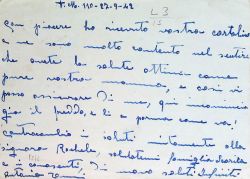 P.M. 110-27-9-42
L 3
15
Con piacere ho ricevuto vostra cartolina
e ne sono molto contento nel sentire
che avete la salute ottima come
pure vostra mamma, e così vi
posso assicurare di me, qui incomincia
già il freddo, e li a come va!
contracambio i saluti unitamente alla
signora Rachele, salutatemi famiglia
e conoscenti, Di nuovo saluti infiniti